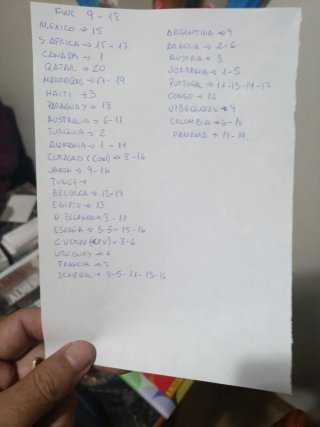 FWC 9 - 18
MEXICO → 15
S. AFRICA → 15 - 17
CANADA → 1
QATAR → 20
MARRUECOS → 17 - 19
HAITI → 3
PARAGUAY → 18
AUSTRALIA → 6 - 18
TURQUIA → 2
ALEMANIA → 1 - 14
CURAÇAO (CUW) → 8 - 16
JAPON → 9 - 16
TUNEZ →
BELGICA → 12 - 13
EGIPTO → 13
N. ZELANDA → 3 - 11
ESPAÑA → 3 - 5 - 15 - 16
C. VERDE (CPV) → 3 - 6
URUGUAY → 6
FRANCIA → 7
SENEGAL → 3 - 5 - 11 - 13 - 16
ARGENTINA → 9
ARGELIA → 2 - 6
AUSTRIA → 3
JORDANIA → 1 - 5
PORTUGAL → 11 - 13 - 14 - 17
CONGO → 12
UZBEQUISTAN → 4
COLOMBIA → 6 - 18
PANAMA → 14 - 19